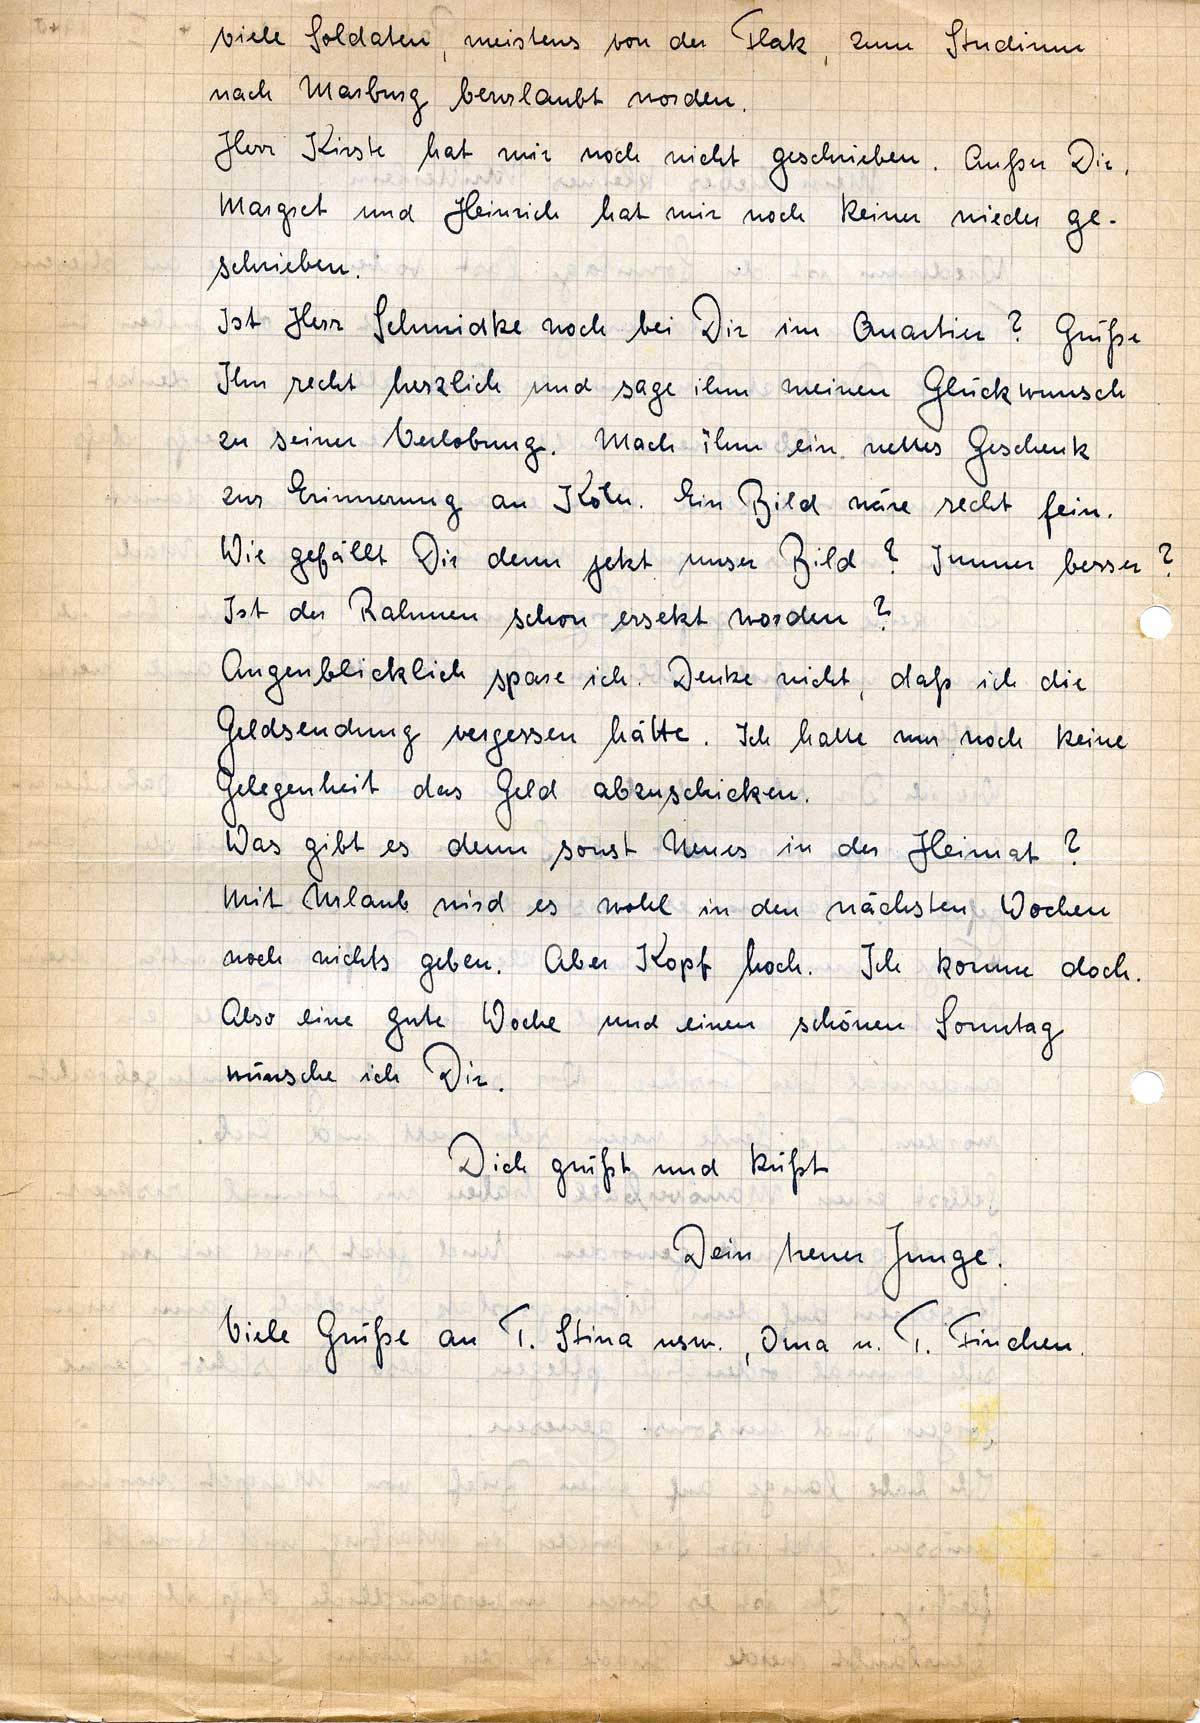 viele Soldaten, meistens von der Flak, zum Studium
nach Marburg beurlaubt worden.
Herr Kirste hat mir noch nicht geschrieben. Außer Dir,
Margret und Heinrich hat mir noch keiner wieder ge-
schrieben.
Ist Herr Schmidke noch bei Dir im Quartier? Grüße
Ihn recht herzlich und sage ihm meinen Glückwunsch
zu seiner Verlobung. Mach ihm ein nettes Geschenk
zur Erinnerung an Köln. Ein Bild wäre recht fein.
Wie gefällt Dir denn jetzt unser Bild? Immer besser?
Ist der Rahmen schon ersetzt worden?
Augenblicklich spare ich. Denke nicht, daß ich die
Geldsendung vergessen hätte. Ich hatte nur noch keine
Gelegenheit das Geld abzuschicken.
Was gibt es denn sonst Neues in der Heimat?
Mit Urlaub wird es wohl in den nächsten Wochen
noch nichts geben. Aber Kopf hoch. Ich komme doch.
Also eine gute Woche und einen schönen Sonntag
wünsche ich Dir.
Dich grüßt und küßt
Dein treuer Junge.
Viele Grüße an T. Stina usw., Oma u. T. Finchen.